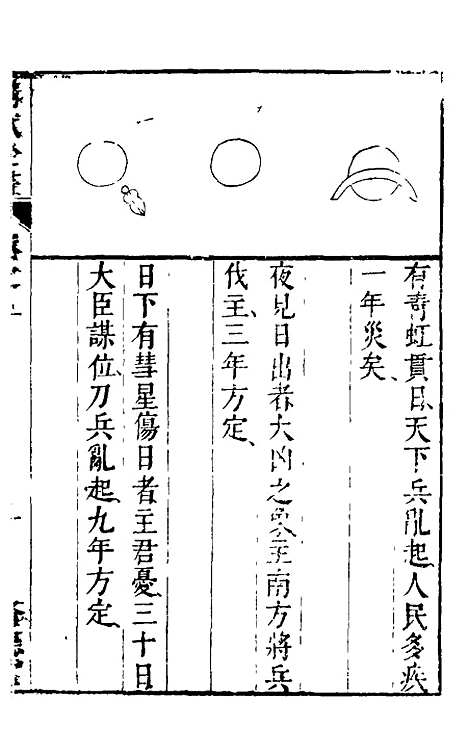 有奇虹貫日、天下兵亂起、人民多疾
一年災矣、
夜見日出者大凶之象、主南方將兵
伐主、三年方定、
日下有彗星傷日者主君憂、三十日
大臣謀位、刀兵亂起、九年方定、